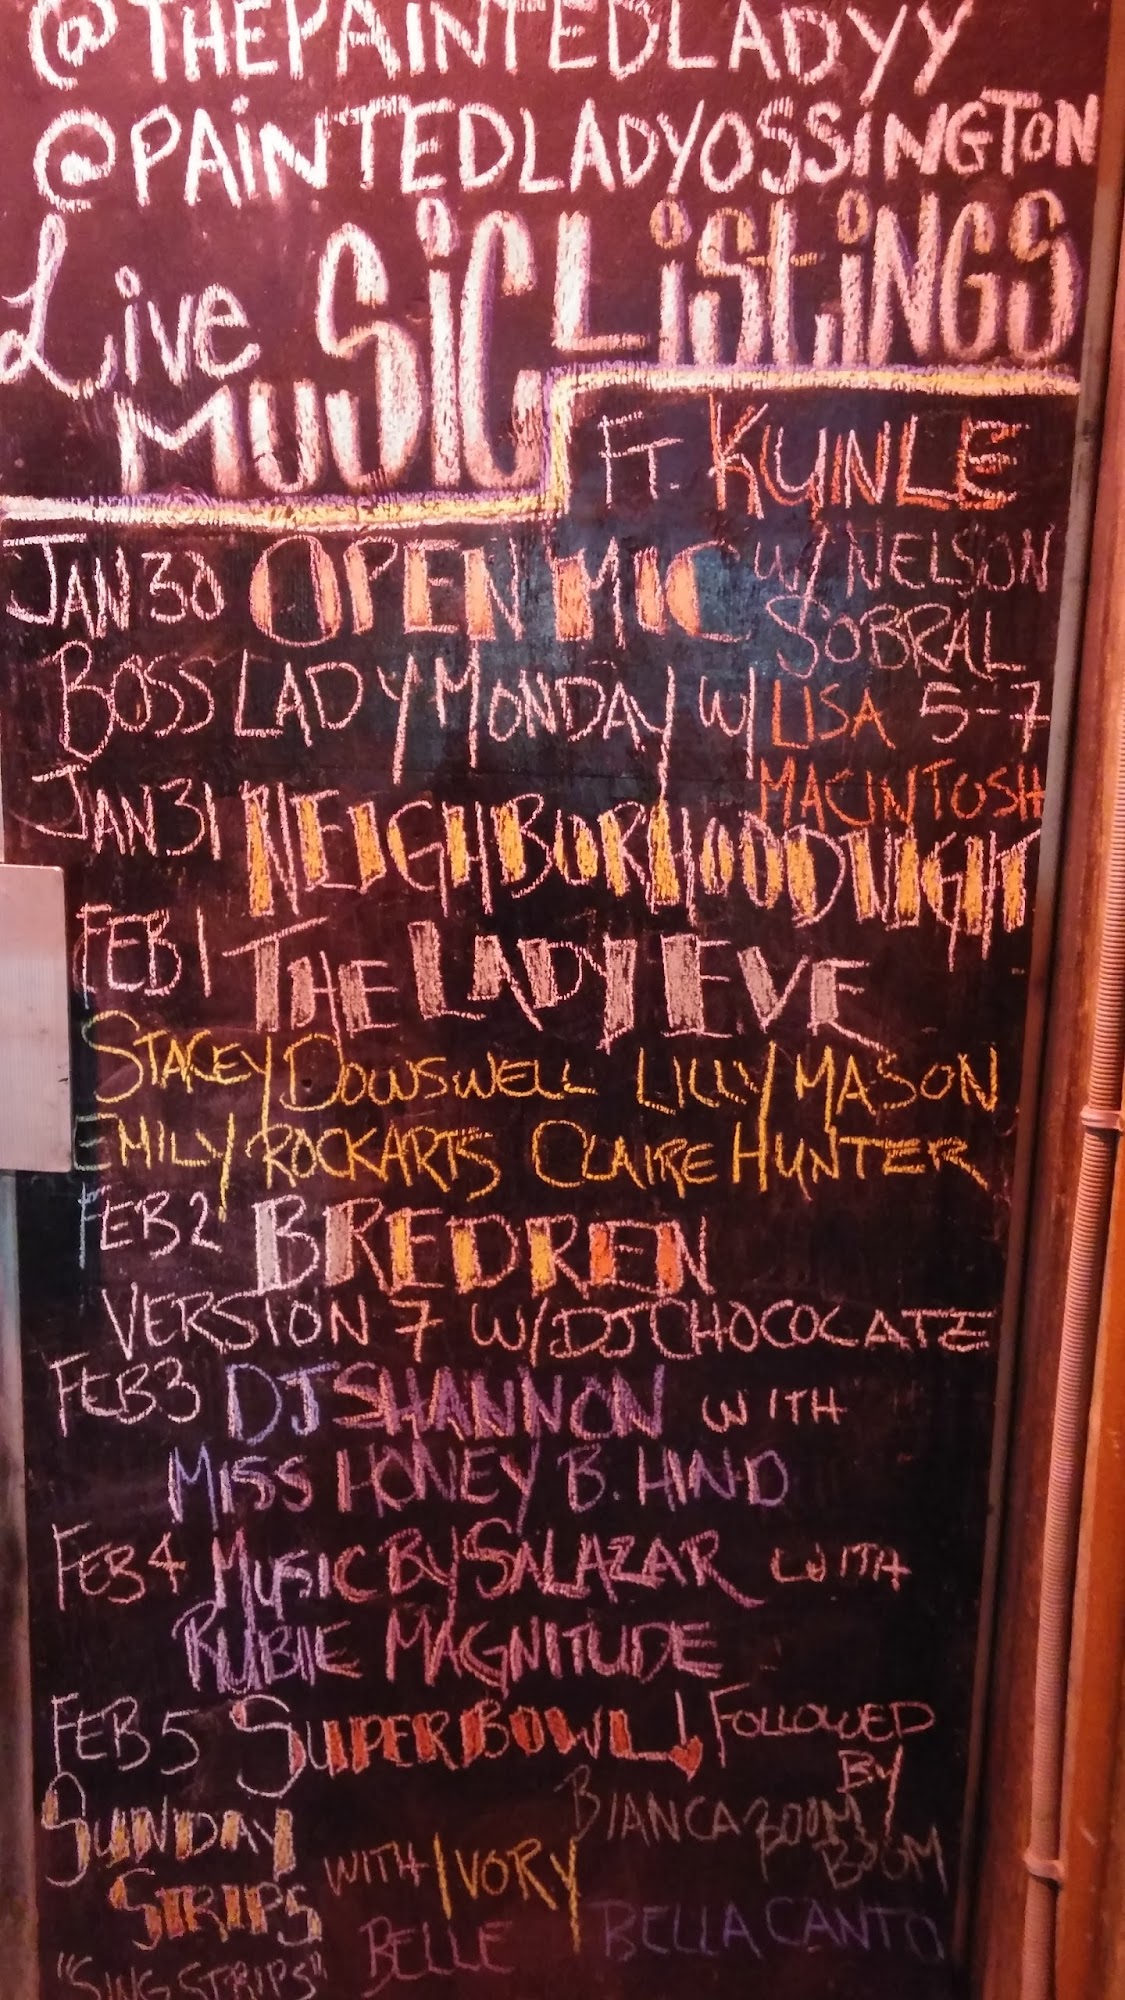 @THEPAINTEDLADYY
@PAINTEDLADYOSSINGTON
Live MUSIC LISTINGS
FT. KUNLE
JAN 30 OPEN MIC W/ NELSON SOBRAL
BOSS LADY MONDAY W/ LISA MACINTOSH 5-7
JAN 31 NEIGHBORHOOD NIGHT
FEB 1 THE LADY EVE
STACEY DOWSWELL LILLY MASON
EMILY ROCKARTS CLAIRE HUNTER
FEB 2 BREDREN
VERSION 7 W/ DJ CHOCOLATE
FEB 3 DJ SHANNON WITH
MISS HONEY B. HIND
FEB 4 MUSIC BY SALAZAR WITH
RUBIE MAGNITUDE
FEB 5 SUPERBOWL! FOLLOWED BY
SUNDAY STRIPS
WITH IVORY BELLE
BIANCA BOOM BOOM
BELLA CANTO
"SING STRIPS"